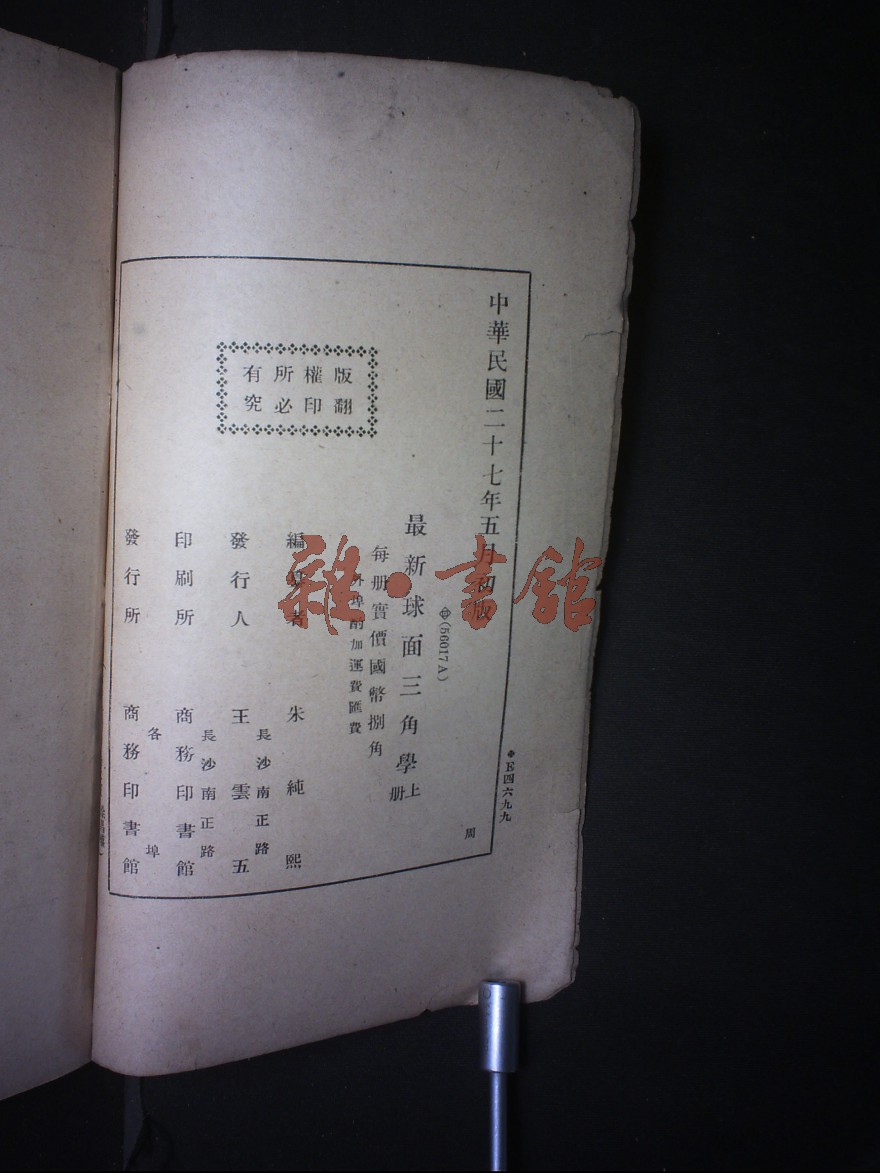 中華民國二十七年五月初版
◆E四六九九
(56017A)
最新球面三角學上册
每册實價國幣捌角
外埠酌加運費匯費
版權所有
翻印必究
編纂者 朱純熙
發行人 王雲五
長沙南正路
印刷所 商務印書館
長沙南正路
發行所 商務印書館
各埠
周
雜·書館